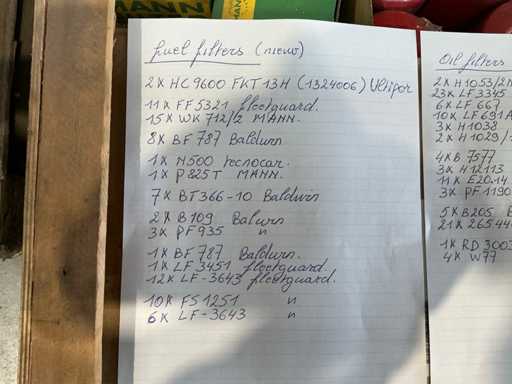 MANN
fuel filters (nieuw)
2x HC9600 FKT13H (1324006) Ultipor
11x FF5321 fleetguard.
15x WK712/2 MANN.
8x BF787 Baldwin
1x N500 tecnocar.
1x P825T MANN.
7x BT366-10 Baldwin
2x B109 Balwin
3x PF935 "
1x BF787 Baldwin.
1x LF3451 fleetguard.
12x LF-3643 fleetguard.
10x FS1251 "
6x LF-3643 "
Oil filters
2x H1053/2
23x LF3345
6x LF667
10x LF691A
3x H1038
2x H1029/1
4x B7577
3x H12113
11x E20.14
3x PF1190
5x B205 B
21x 26544
1x RD3003
4x W77